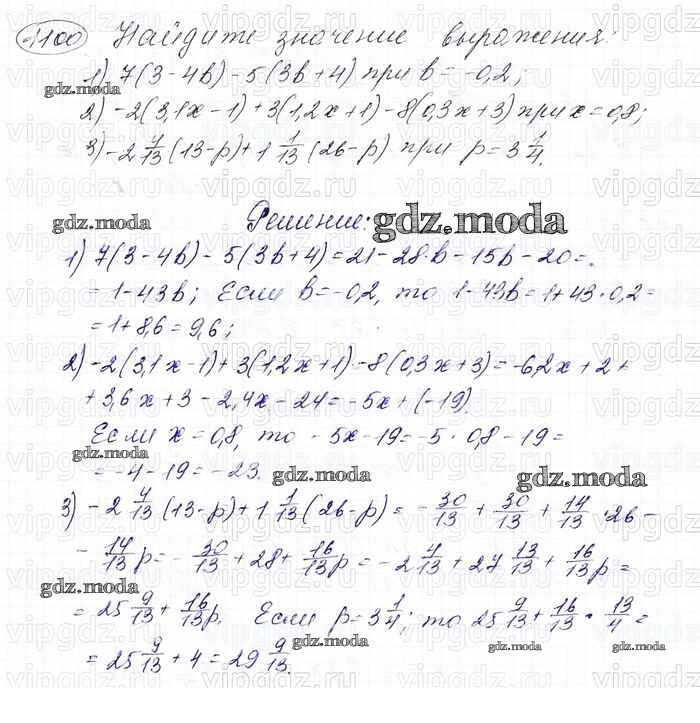 1100 Найдите значение выражения:
1) 7(3-4b)-5(3b+4) при b=-0,2;
gdz.moda
2) -2(3,1x-1)+3(1,2x+1)-8(0,3x+3) при x=0,8;
3) -2 4/13 (13-p)+1 1/13 (26-p) при p=3 1/4.
gdz.moda Решение: gdz.moda
1) 7(3-4b)-5(3b+4)=21-28·b-15b-20=
=1-43b; Если b=-0,2, то 1-43b=1+43·0,2=
=1+8,6=9,6;
2) -2(3,1x-1)+3(1,2x+1)-8(0,3x+3)=-6,2x+2+
+3,6x+3-2,4x-24=-5x+(-19).
gdz.moda
Если x=0,8, то -5x-19=-5·0,8-19=
=-4-19=-23.
gdz.moda gdz.moda
3) -2 4/13 (13-p)+1 1/13 (26-p)=-30/13+30/13+14/13·26-
-14/13 p=-30/13+28+16/13 p=-2 4/13+27 13/13+16/13 p=
gdz.moda
=25 9/13+16/13 p. Если p=3 1/4; то 25 9/13+16/13·13/4=
=25 9/13+4=29 9/13.
gdz.moda gdz.moda